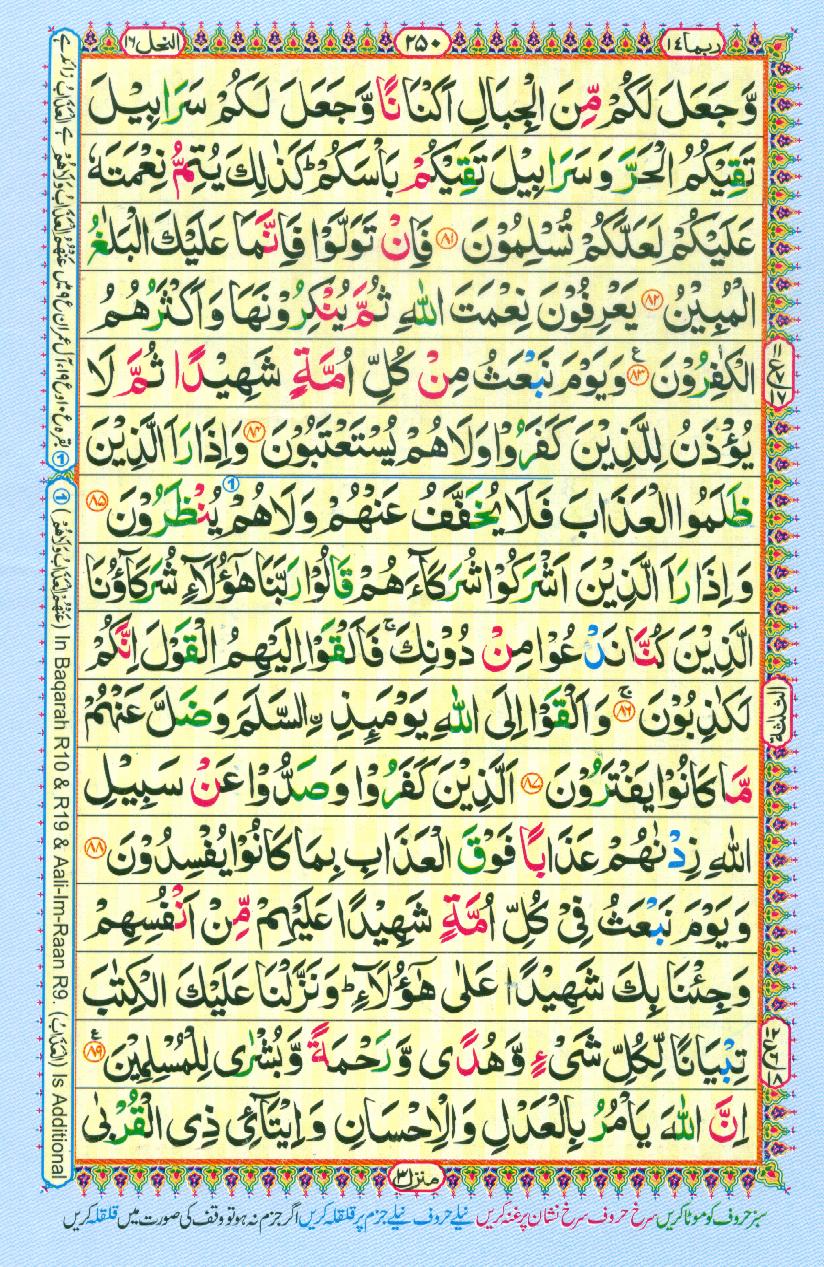 ربما ١٤
٢٥٠
النحل ١٦
وَّجَعَلَ لَكُمْ مِّنَ الْجِبَالِ اَكْنَانًا وَّجَعَلَ لَكُمْ سَرَابِيْلَ
تَقِيْكُمُ الْحَرَّ وَسَرَابِيْلَ تَقِيْكُمْ بَاْسَكُمْ ؕ كَذٰلِكَ يُتِمُّ نِعْمَتَهٗ
عَلَيْكُمْ لَعَلَّكُمْ تُسْلِمُوْنَ ۝٨١ فَاِنْ تَوَلَّوْا فَاِنَّمَا عَلَيْكَ الْبَلٰغُ
الْمُبِيْنُ ۝٨٢ يَعْرِفُوْنَ نِعْمَتَ اللّٰهِ ثُمَّ يُنْكِرُوْنَهَا وَاَكْثَرُهُمُ
الْكٰفِرُوْنَ ۝٨٣ وَيَوْمَ نَبْعَثُ مِنْ كُلِّ اُمَّةٍ شَهِيْدًا ثُمَّ لَا
يُؤْذَنُ لِلَّذِيْنَ كَفَرُوْا وَلَا هُمْ يُسْتَعْتَبُوْنَ ۝٨٤ وَاِذَا رَاَ الَّذِيْنَ
ظَلَمُوا الْعَذَابَ فَلَا يُخَفَّفُ عَنْهُمْ وَلَا هُمْ يُنْظَرُوْنَ ۝٨٥
وَاِذَا رَاَ الَّذِيْنَ اَشْرَكُوْا شُرَكَآءَهُمْ قَالُوْا رَبَّنَا هٰۤؤُلَآءِ شُرَكَآؤُنَا
الَّذِيْنَ كُنَّا نَدْعُوْا مِنْ دُوْنِكَ ۚ فَاَلْقَوْا اِلَيْهِمُ الْقَوْلَ اِنَّكُمْ
لَكٰذِبُوْنَ ۝٨٦ وَاَلْقَوْا اِلَى اللّٰهِ يَوْمَئِذِ ۨالسَّلَمَ وَضَلَّ عَنْهُمْ
مَّا كَانُوْا يَفْتَرُوْنَ ۝٨٧ اَلَّذِيْنَ كَفَرُوْا وَصَدُّوْا عَنْ سَبِيْلِ
اللّٰهِ زِدْنٰهُمْ عَذَابًا فَوْقَ الْعَذَابِ بِمَا كَانُوْا يُفْسِدُوْنَ ۝٨٨
وَيَوْمَ نَبْعَثُ فِيْ كُلِّ اُمَّةٍ شَهِيْدًا عَلَيْهِمْ مِّنْ اَنْفُسِهِمْ
وَجِئْنَا بِكَ شَهِيْدًا عَلٰى هٰۤؤُلَآءِ ؕ وَنَزَّلْنَا عَلَيْكَ الْكِتٰبَ
تِبْيَانًا لِّكُلِّ شَيْءٍ وَّهُدًى وَّرَحْمَةً وَّبُشْرٰى لِلْمُسْلِمِيْنَ ۝٨٩
اِنَّ اللّٰهَ يَاْمُرُ بِالْعَدْلِ وَالْاِحْسَانِ وَاِيْتَآئِ ذِي الْقُرْبٰى
الثلاثة
منزل ٣
(عَنْهُمُ الْعَذَابُ وَلَا هُمْ) In Baqarah R10 & R19 & Aali-Im-Raan R9. (الْعَذَابُ) Is Additional
سبز حروف کو موٹا کریں سرخ حروف سرخ نشان پر غنہ کریں نیلے حروف نیلے جزم پر قلقلہ کریں اگر جزم نہ ہو تو وقف کی صورت میں قلقلہ کریں